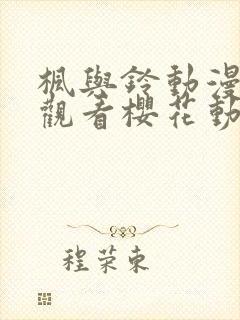 楓與鈴動漫
觀看櫻花動
程荣東